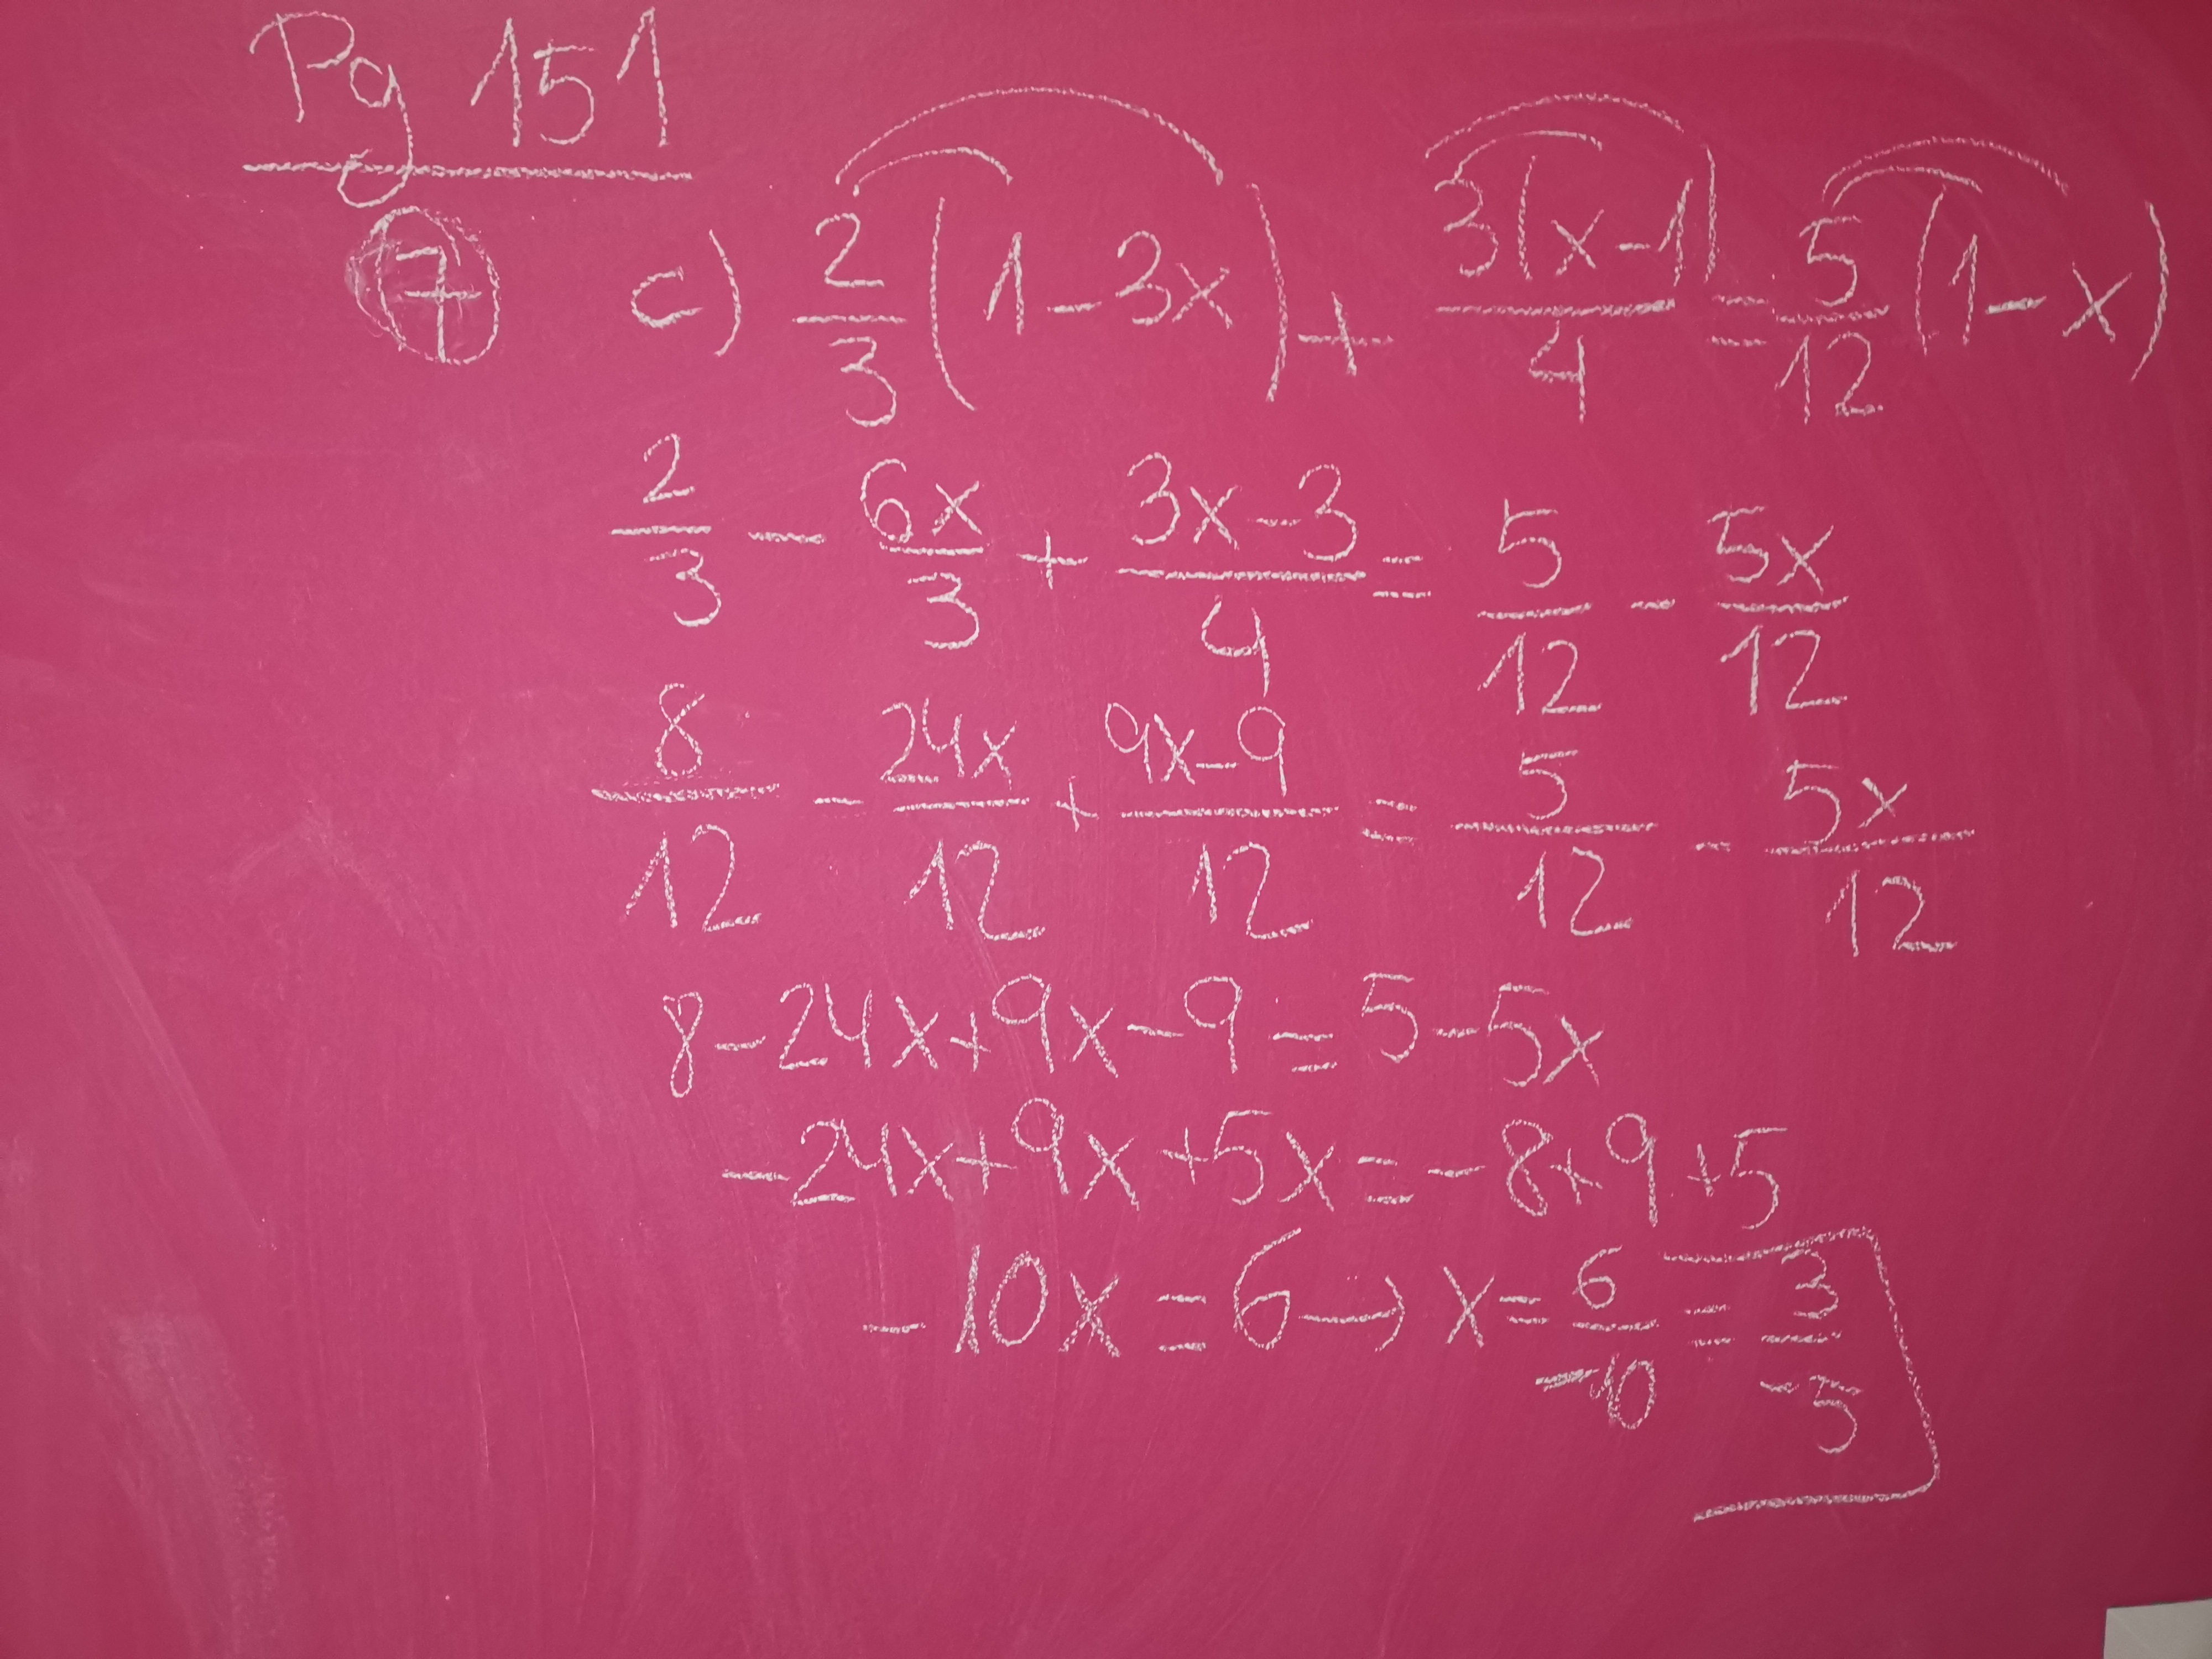 Pg 151
7 c) 2/3 (1-3x) + 3(x-1)/4 = 5/12 (1-x)
2/3 - 6x/3 + 3x-3/4 = 5/12 - 5x/12
8/12 - 24x/12 + 9x-9/12 = 5/12 - 5x/12
8-24x+9x-9=5-5x
-24x+9x+5x=-8+9+5
-10x=6→x=6/-10=3/-5